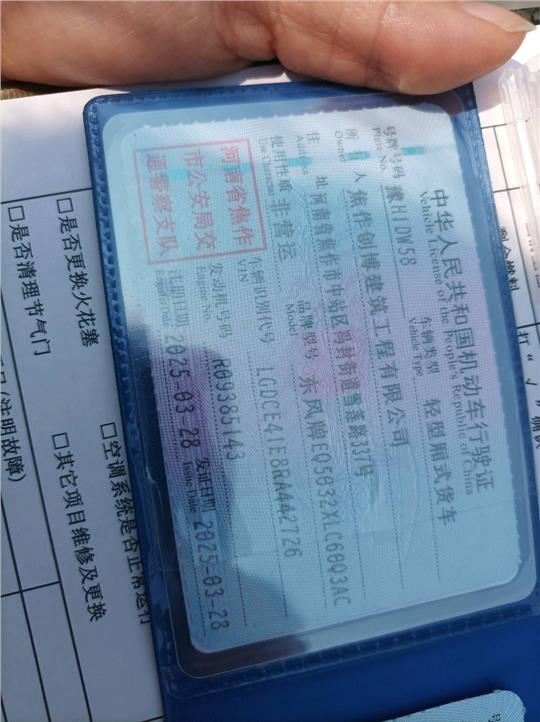 中华人民共和国机动车行驶证
Vehicle License of the People's Republic of China
号牌号码 豫H1DW58 车辆类型 轻型厢式货车
Plate No. Vehicle Type
所有人 焦作创博建筑工程有限公司
Owner
住址 河南省焦作市中站区冯封街道雪莲路337号
Address
使用性质 非营运 品牌型号 东风牌EQ5032XLC60Q3AC
Use Character Model
河南省焦作
市公安局交
通警察支队
车辆识别代号 LGDCE41E8RA442726
VIN
发动机号码 R09385143
Engine
注册日期 2025-03-28 发证日期 2025-03-28
Register Date Issue Date
□是否更换火花塞 □空调系统是否正常运行
□是否清理节气门 □其它项目维修及更换
(注明故障)
剩余燃料
打“√”确认